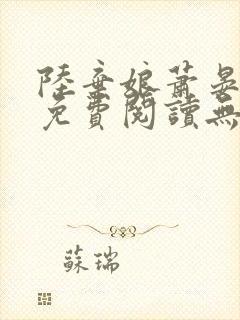 陸棄娘蕭晏
免費閱讀無
蘇瑞